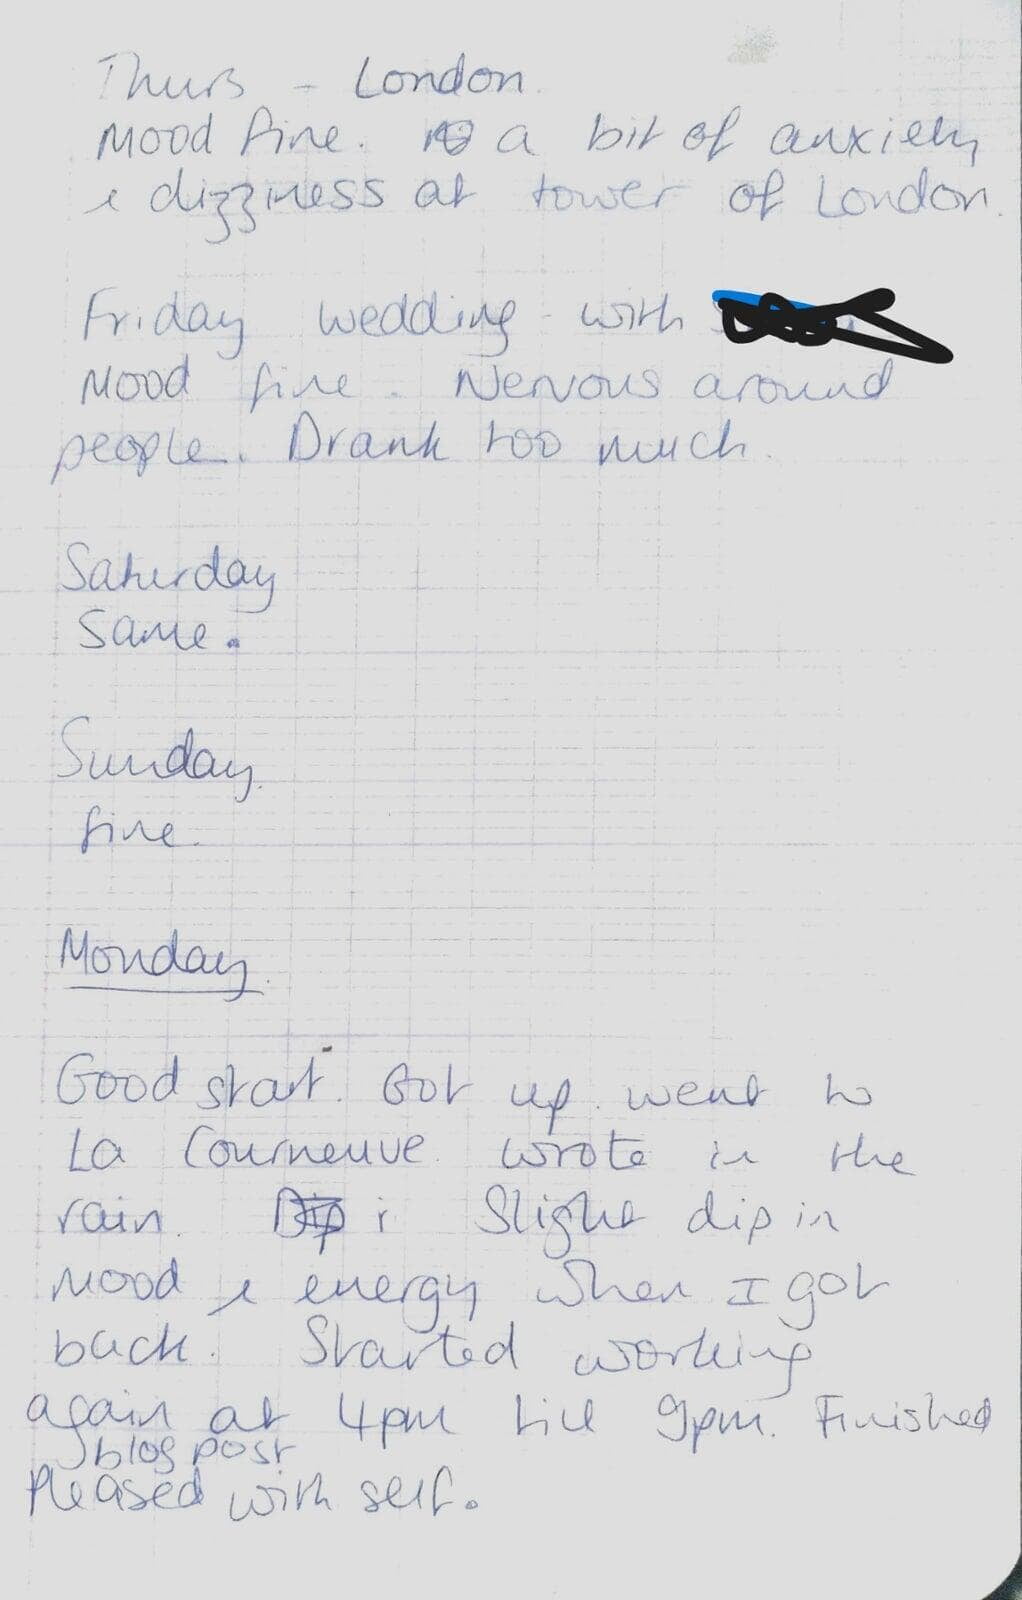 Thurs - London.
Mood fine. a bit of anxiety
& dizziness at tower of London.
Friday wedding - with
Mood fine. Nervous around
people. Drank too much.
Saturday
Same.
Sunday.
fine.
Monday.
Good start. Got up. went to
La Courneuve. wrote in the
rain. Slight dip in
mood & energy when I got
back. Started working
again at 4pm till 9pm. Finished
blog post
Pleased with self.